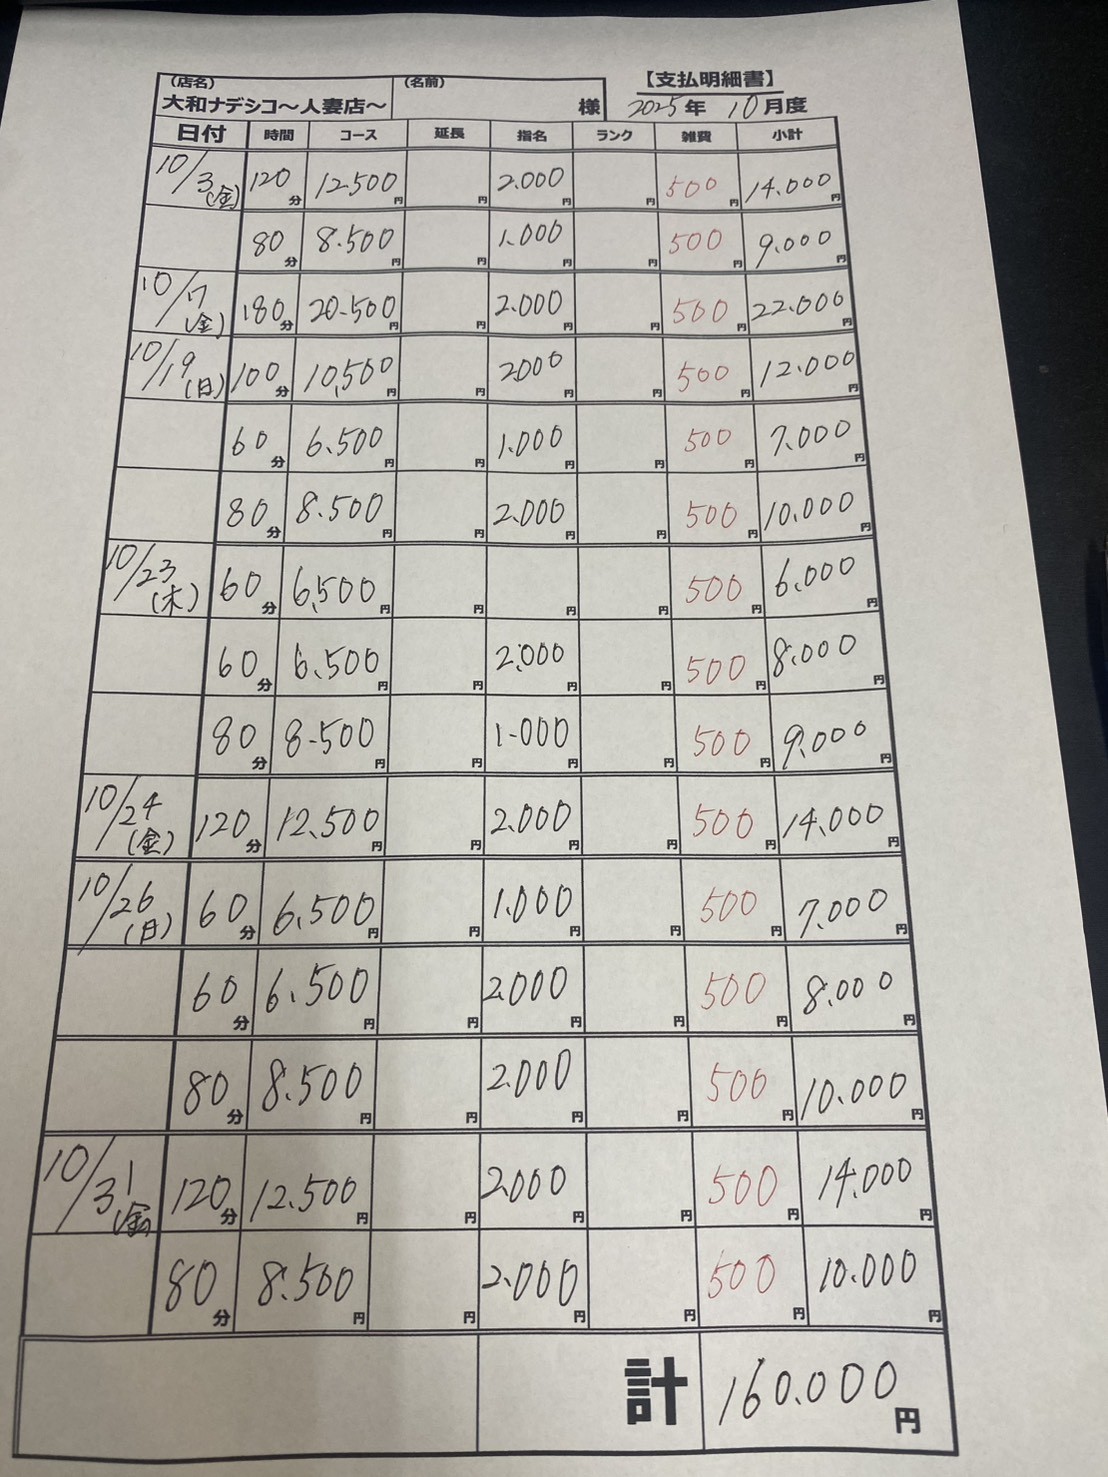 （店名）
大和ナデシコ～人妻店～
（名前）
様
【支払明細書】
2025年 10月度
日付 時間 コース 延長 指名 ランク 雑費 小計
10/3(金) 120分 12500円 円 2.000円 円 500円 14.000円
80分 8.500円 円 1.000円 円 500円 9.000円
10/7(金) 180分 20.500円 円 2.000円 円 500円 22.000円
10/19(日) 100分 10,500円 円 2000円 円 500円 12.000円
60分 6.500円 円 1.000円 円 500円 7.000円
80分 8.500円 円 2.000円 円 500円 10.000円
10/23(木) 60分 6,500円 円 円 円 500円 6.000円
60分 6.500円 円 2.000円 円 500円 8.000円
80分 8.500円 円 1.000円 円 500円 9.000円
10/24(金) 120分 12.500円 円 2.000円 円 500円 14.000円
10/26(日) 60分 6.500円 円 1.000円 円 500円 7.000円
60分 6.500円 円 2.000円 円 500円 8.000円
80分 8.500円 円 2.000円 円 500円 10.000円
10/31(金) 120分 12.500円 円 2.000円 円 500円 14.000円
80分 8.500円 円 2.000円 円 500円 10.000円
計 160.000円